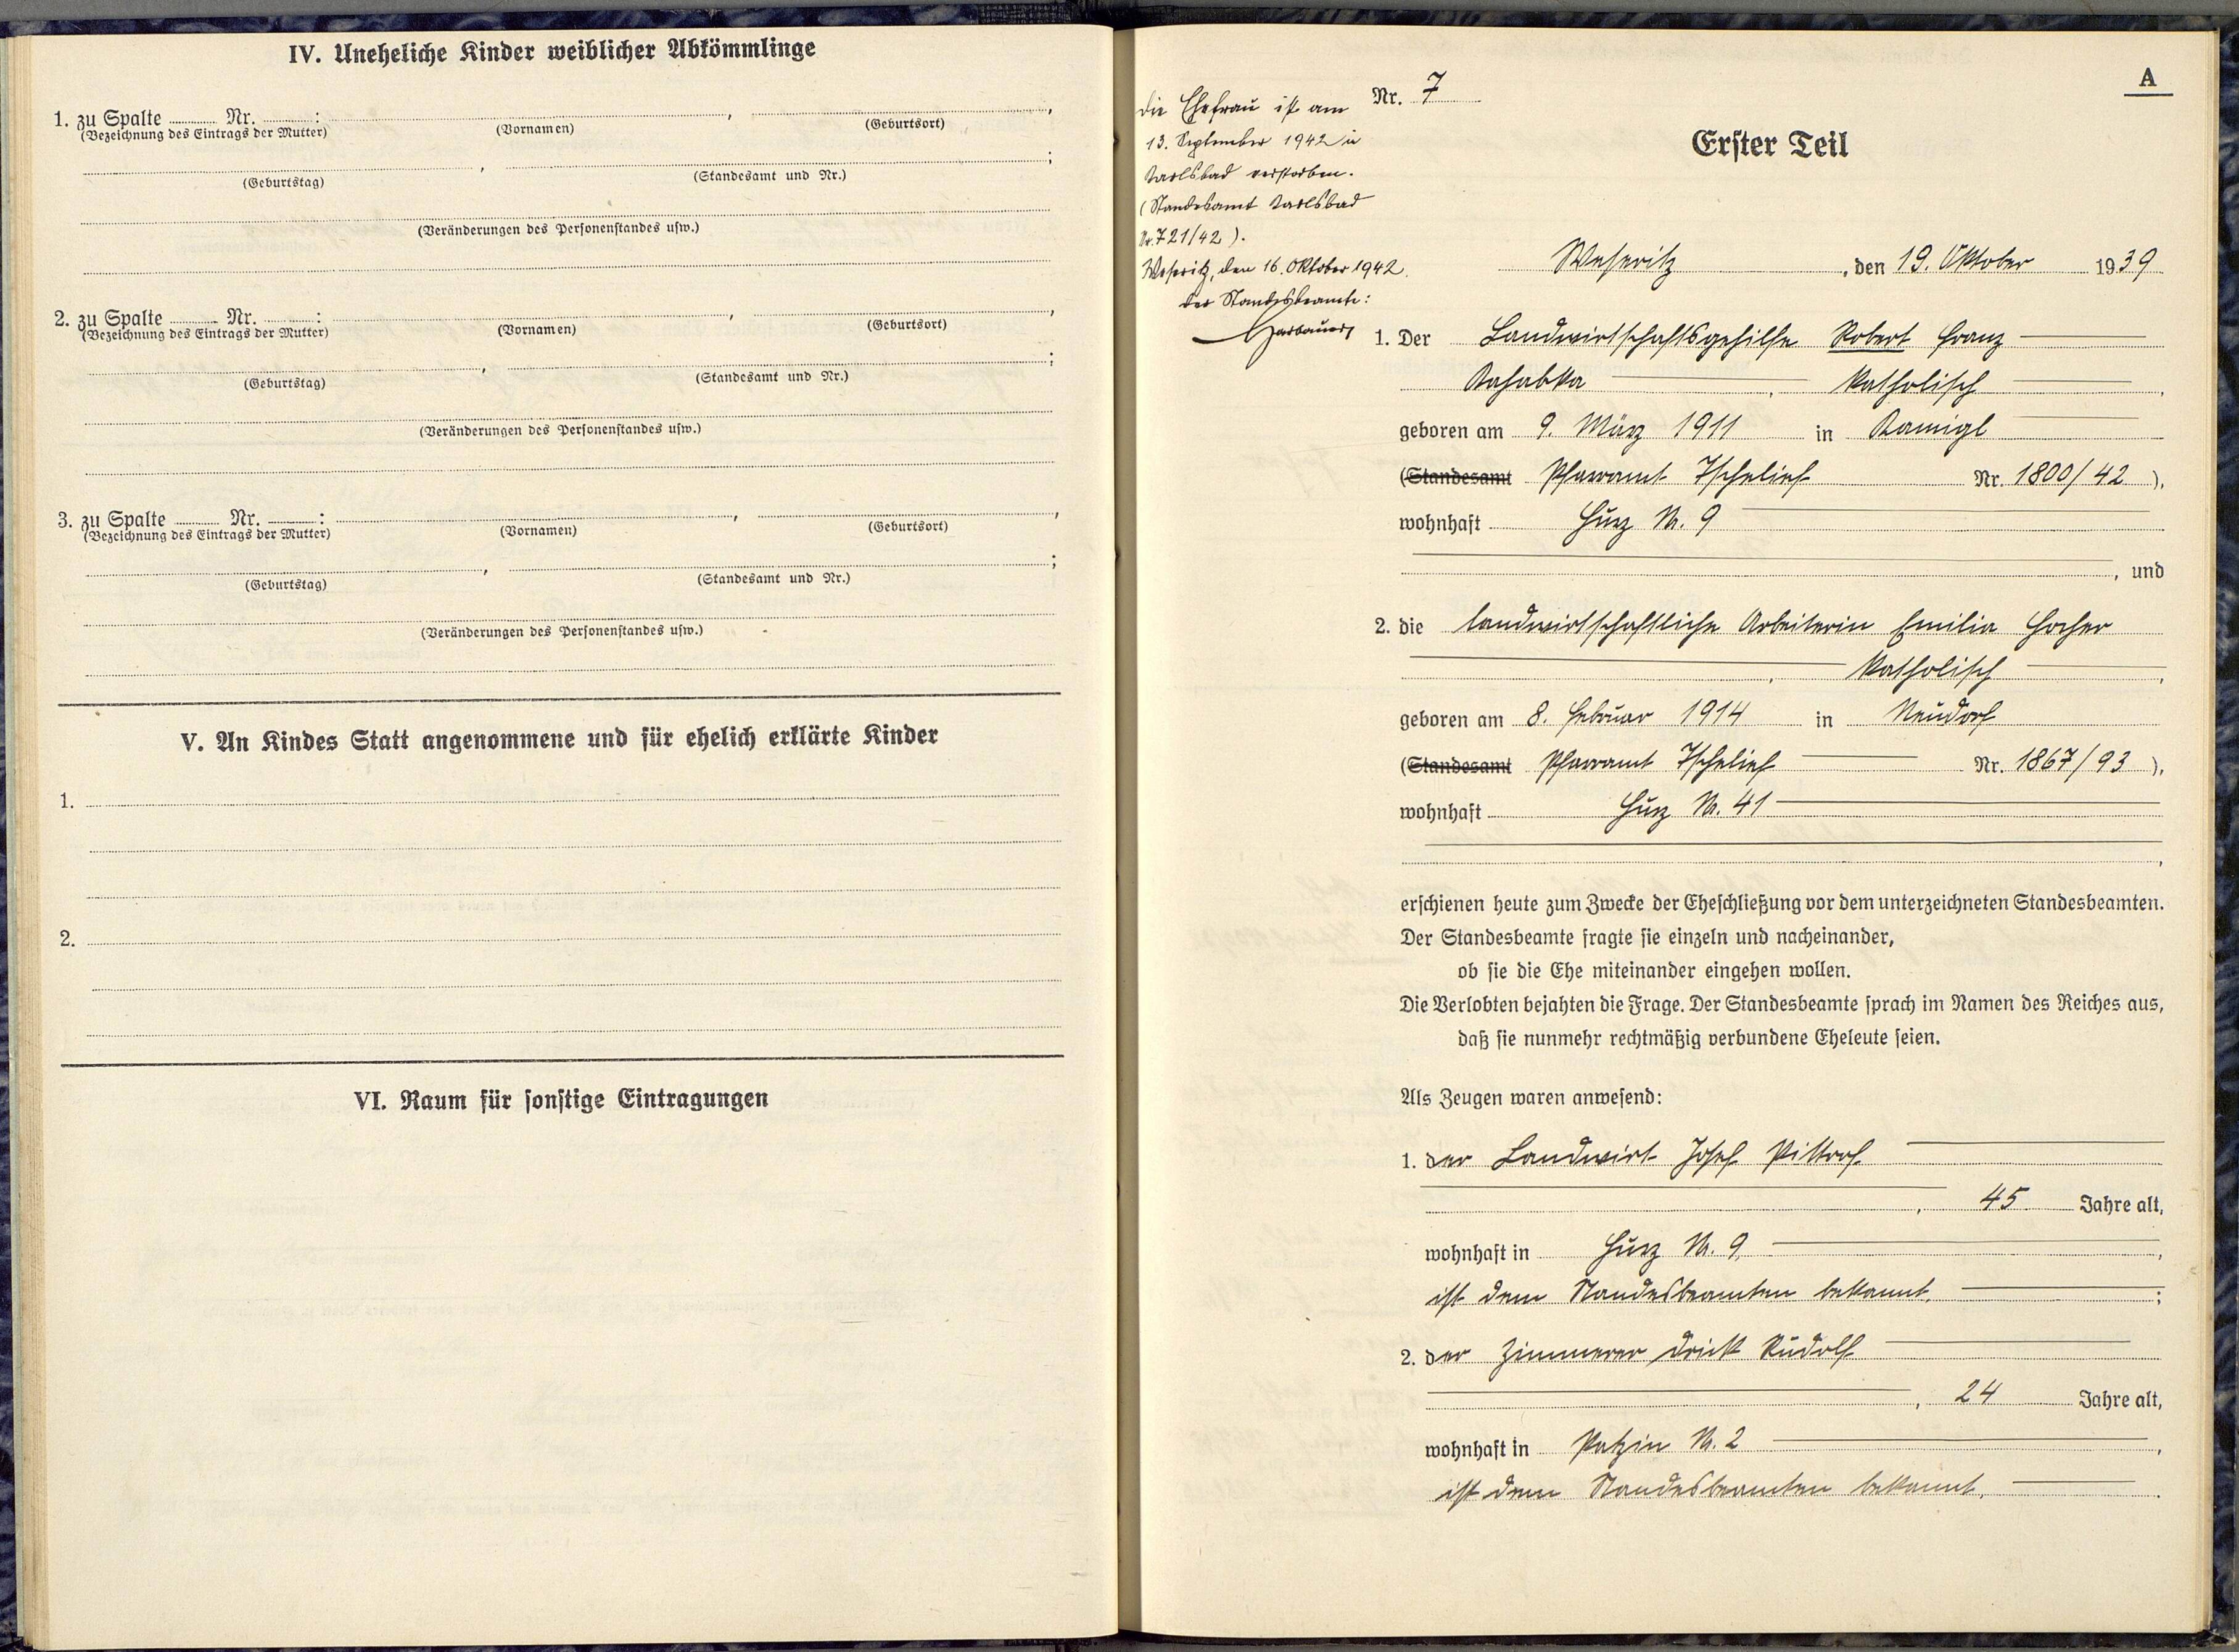 IV. Uneheliche Kinder weiblicher Abkömmlinge
1. zu Spalte Nr. : , ,
(Bezeichnung des Eintrags der Mutter) (Vornamen) (Geburtsort)
, ;
(Geburtstag) (Standesamt und Nr.)
(Veränderungen des Personenstandes usw.)
2. zu Spalte Nr. : , ,
(Bezeichnung des Eintrags der Mutter) (Vornamen) (Geburtsort)
, ;
(Geburtstag) (Standesamt und Nr.)
(Veränderungen des Personenstandes usw.)
3. zu Spalte Nr. : , ,
(Bezeichnung des Eintrags der Mutter) (Vornamen) (Geburtsort)
, ;
(Geburtstag) (Standesamt und Nr.)
(Veränderungen des Personenstandes usw.)
V. An Kindes Statt angenommene und für ehelich erklärte Kinder
1.
2.
VI. Raum für sonstige Eintragungen
A
Nr. 7
Die Ehefrau ist am
13. September 1942 in
Karlsbad verstorben.
(Standesamt Karlsbad
Nr. 721/42).
Weseritz, den 16. Oktober 1942.
der Standesbeamte:
Erster Teil
Weseritz, den 19. Oktober 1939
1. Der Landwirtschaftsgehilfe Robert Franz
, katholisch,
geboren am 9. März 1911 in
(Standesamt Pfarramt Tschelief Nr. 1800/42),
wohnhaft Hurz Nr. 9
, und
2. die landwirtschaftliche Arbeiterin Emilia
, katholisch,
geboren am 8. Februar 1914 in Neudorf
(Standesamt Pfarramt Tschelief Nr. 1867/93),
wohnhaft Hurz Nr. 41
,
erschienen heute zum Zwecke der Eheschließung vor dem unterzeichneten Standesbeamten.
Der Standesbeamte fragte sie einzeln und nacheinander,
ob sie die Ehe miteinander eingehen wollen.
Die Verlobten bejahten die Frage. Der Standesbeamte sprach im Namen des Reiches aus,
daß sie nunmehr rechtmäßig verbundene Eheleute seien.
Als Zeugen waren anwesend:
1. der Landwirt Josef Pittrof
, 45 Jahre alt,
wohnhaft in Hurz Nr. 9,
ist dem Standesbeamten bekannt. ;
2. der Zimmerer Rudolf
, 24 Jahre alt,
wohnhaft in Patzin Nr. 2,
ist dem Standesbeamten bekannt.